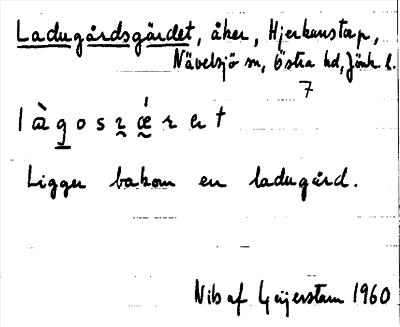 Ladugårdsgärdet, åker, Hjerkanstorp,
Nävelsjö sn, Östra hd, Jönk l.
7
Ligger bakom en ladugård.
Nils af Geijerstam 1960